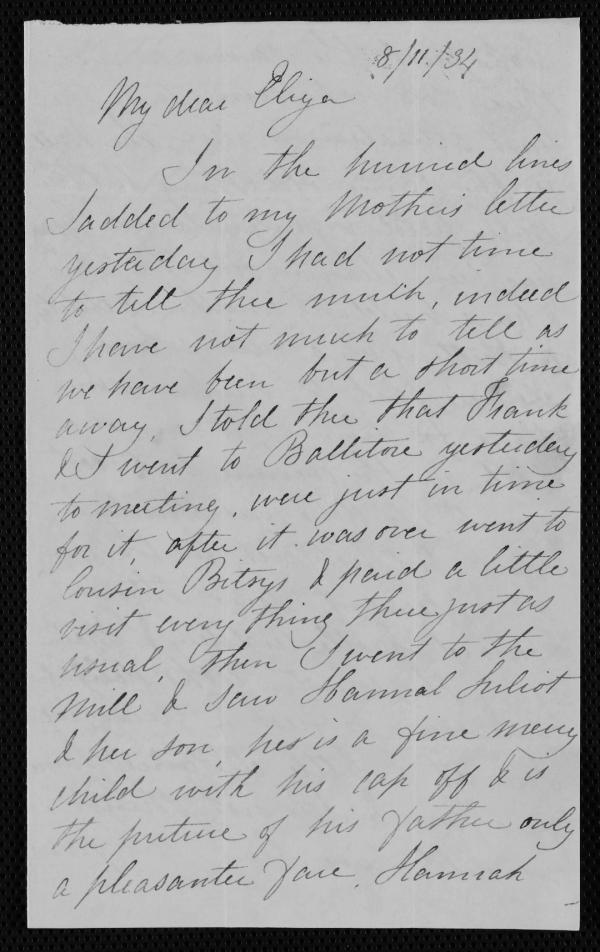 8/11/34
My dear Eliza
In the hurried lines
I added to my Mothers letter
yesterday I had not time
to tell thee much, indeed
I have not much to tell as
we have been but a short time
away, I told thee that Frank
& I went to Ballitore yesterday
to meeting, were just in time
for it, after it was over went to
Cousin Bitsys & paid a little
visit every thing there just as
usual, then I went to the
Mill & saw Hannah
& her son, he is a fine merry
child with his cap off & is
the picture of his father only
a pleasanter face, Hannah